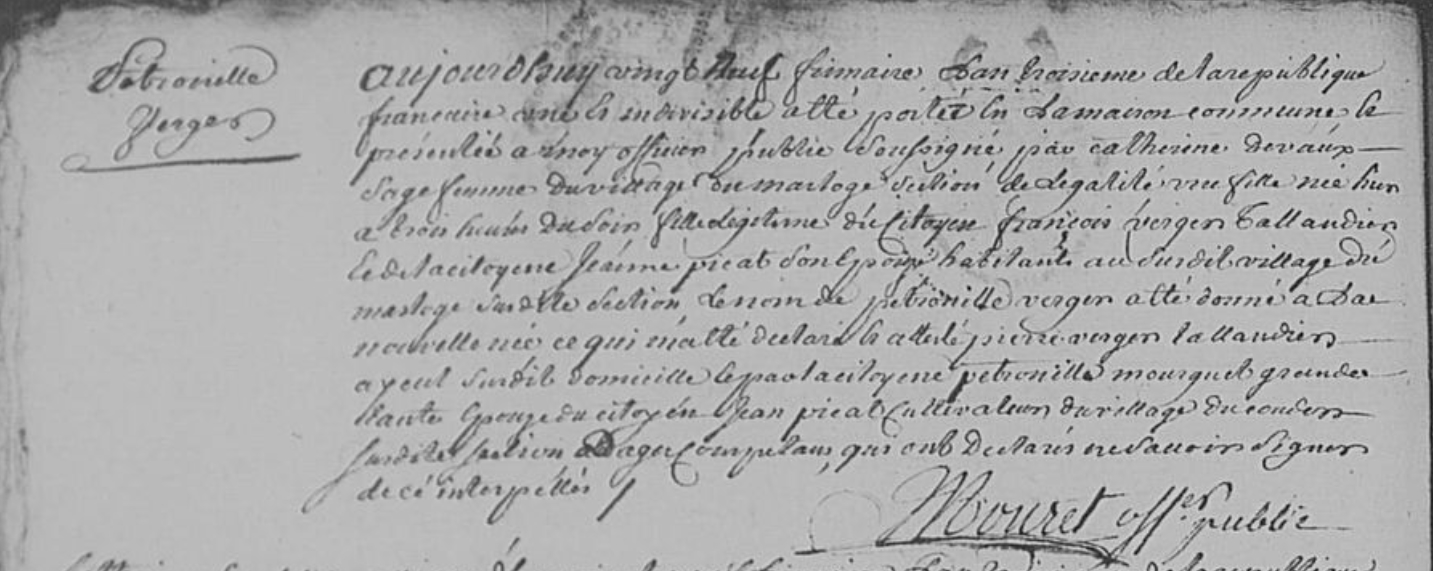 Pétronille
Verger
aujourd'huy vingt neuf frimaire Lan troisieme de la republique
francaise une et indivisible a eté portéé en La maison commune et
présentéé a moy officier public soussigné par catherine devaux
Sage femme du village du mastoge section de Légalité une fille née hier
a trois heures du soir fille Légitime du Citoyen françois verger Tallandier
et de la citoyene Jeanne picat son Epouze habitants au susdit village du
mastoge susdite section, Le nom de pétronille verger a eté donné a La
nouvelle née ce qui m'a eté declaré et attesté pierre verger tallandier
ayeul susdit domicille et par la citoyene petronille mourguet grande
tante Epouze du citoyén Jean picat Cultivateur du village du couder
susdite section d'ages Competans, qui ont declarés ne savoir Signer
de cé interpéllés /
Mouret off.er public